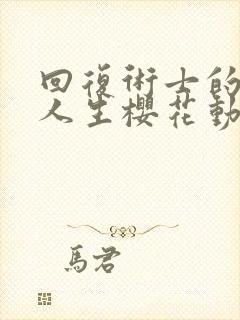 回復術士的
人生櫻花動
馬君